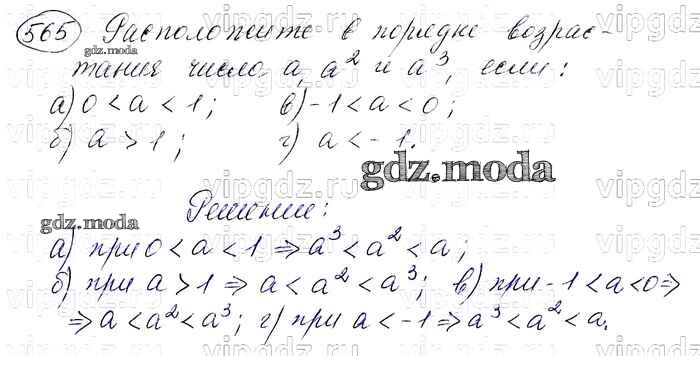 565 Расположите в порядке возрас-
gdz.moda
тания число a, a² и a³, если:
а) 0 < a < 1; в) -1 < a < 0;
б) a > 1; г) a < -1.
gdz.moda
Решение:
gdz.moda
а) при 0 < a < 1 ⇒ a³ < a² < a;
б) при a > 1 ⇒ a < a² < a³; в) при -1 < a < 0 ⇒
⇒ a < a² < a³; г) при a < -1 ⇒ a³ < a² < a.